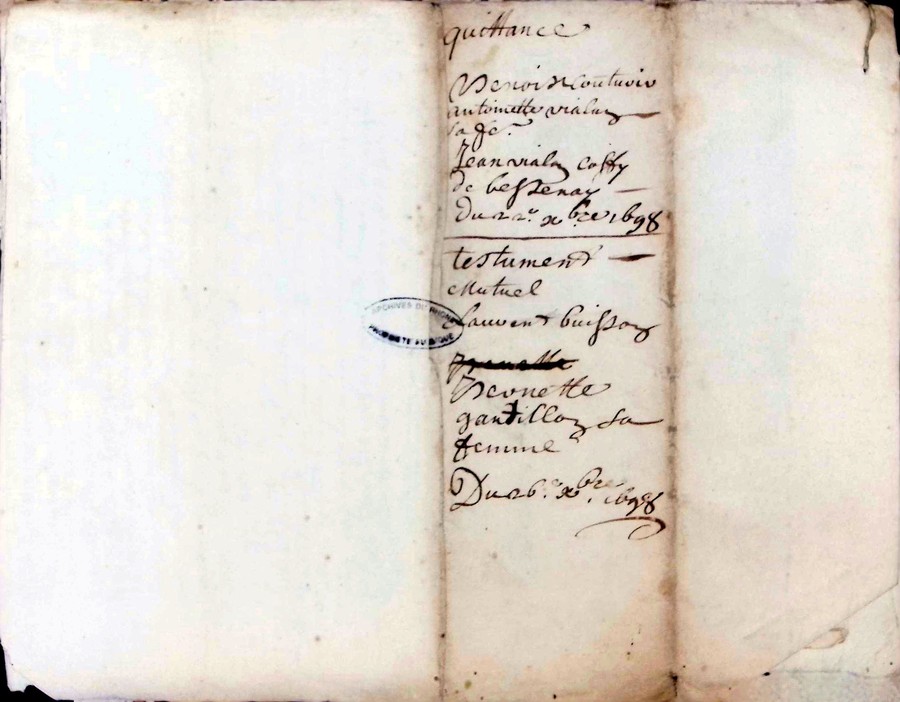 quittance
Benoist Couturier
antoinette vialon
sa fe.
Jean vialon
de bessenay
Du 22e xbre 1698
testument
Mutuel
Laurent buisson
ARCHIVES DU RHONE
PROPRIETE PUBLIQUE
Benette
gantillon sa
femme
Du 26e xbre 1698